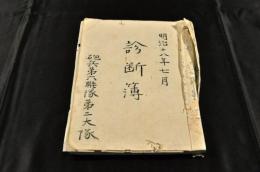 明治十八年七月
診断簿
砲兵第六聯隊第二大隊